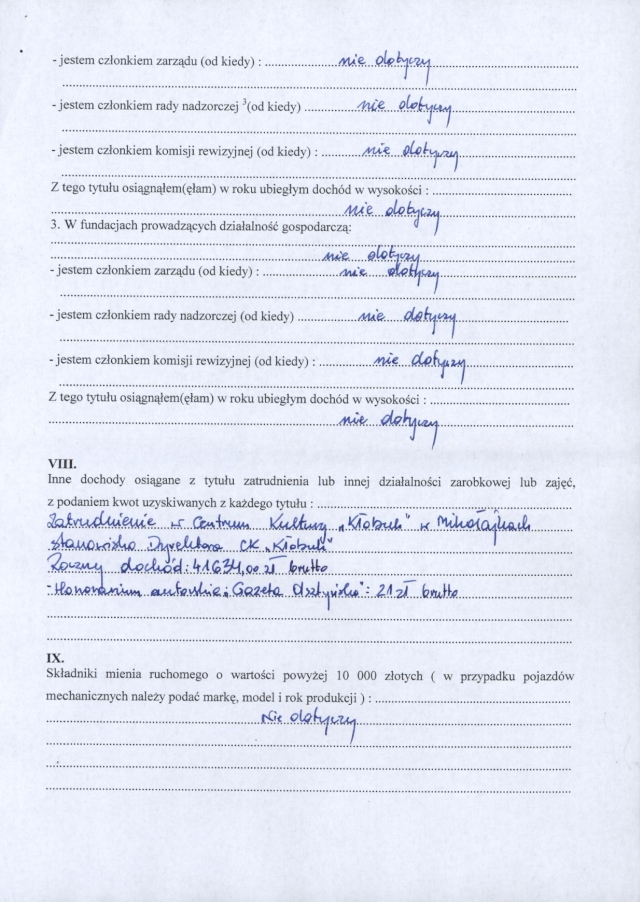 - jestem członkiem zarządu (od kiedy) : nie dotyczy
- jestem członkiem rady nadzorczej ³(od kiedy) nie dotyczy
- jestem członkiem komisji rewizyjnej (od kiedy) : nie dotyczy
Z tego tytułu osiągnąłem(ęłam) w roku ubiegłym dochód w wysokości :
nie dotyczy
3. W fundacjach prowadzących działalność gospodarczą:
nie dotyczy
- jestem członkiem zarządu (od kiedy) : nie dotyczy
- jestem członkiem rady nadzorczej (od kiedy) nie dotyczy
- jestem członkiem komisji rewizyjnej (od kiedy) : nie dotyczy
Z tego tytułu osiągnąłem(ęłam) w roku ubiegłym dochód w wysokości :
nie dotyczy
VIII.
Inne dochody osiągane z tytułu zatrudnienia lub innej działalności zarobkowej lub zajęć,
z podaniem kwot uzyskiwanych z każdego tytułu :
Zatrudnienie w Centrum Kultury „Kłobuk" w Mikołajkach
stanowisko Dyrektora CK „Kłobuk"
Roczny dochód: 41634,00 zł brutto
- Honorarium autorskie: Gazeta Olsztyńska: 21 zł brutto
IX.
Składniki mienia ruchomego o wartości powyżej 10 000 złotych ( w przypadku pojazdów
mechanicznych należy podać markę, model i rok produkcji ) :
Nie dotyczy